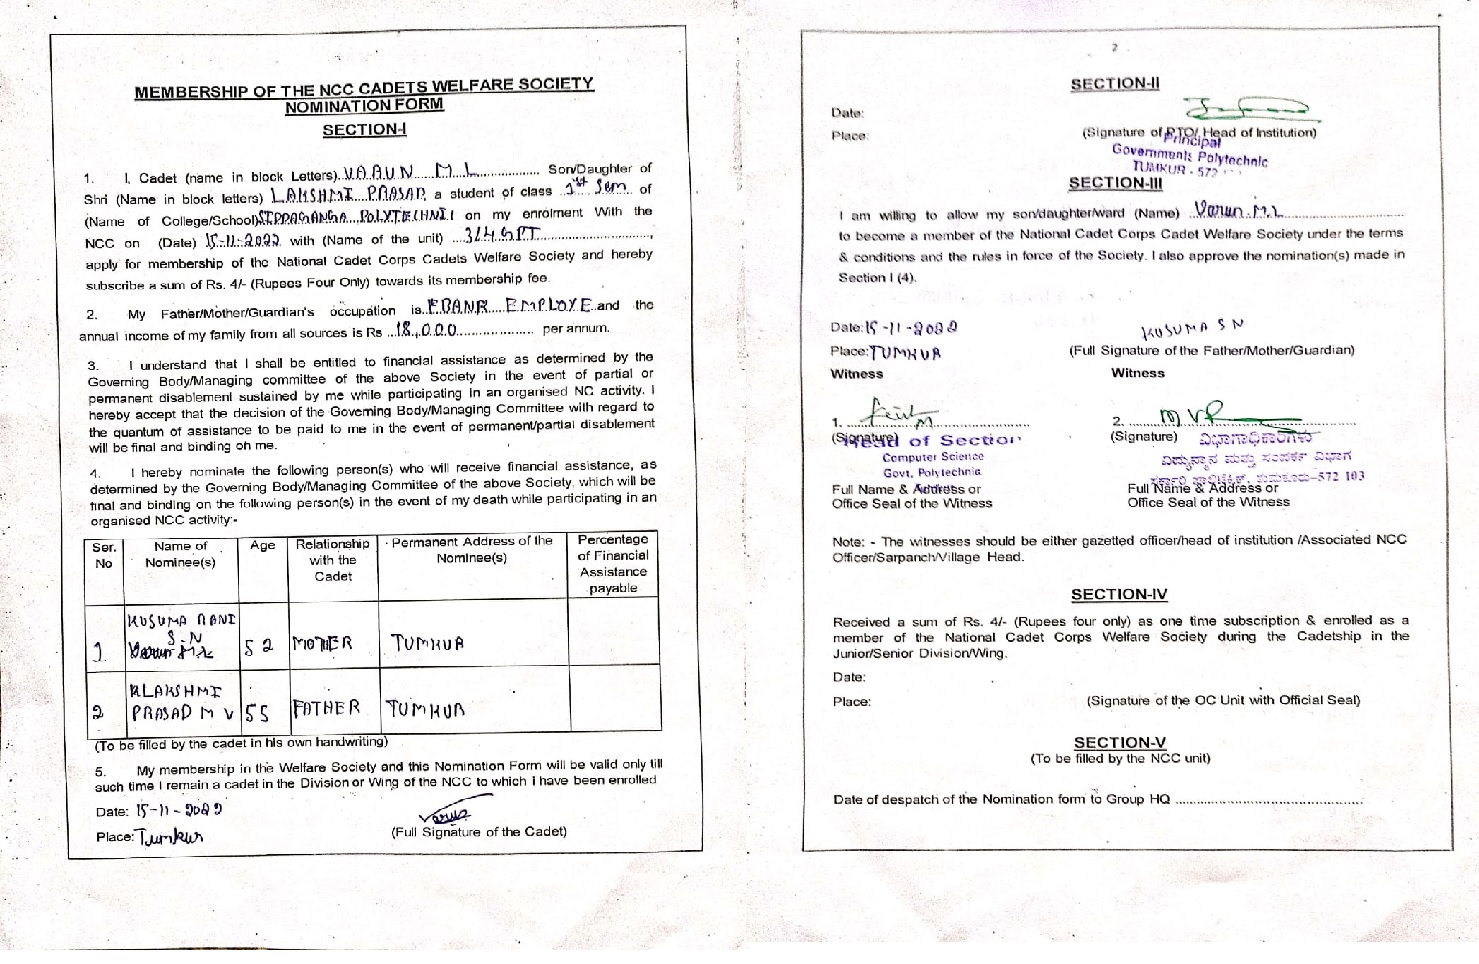 MEMBERSHIP OF THE NCC CADETS WELFARE SOCIETY
NOMINATION FORM
SECTION-I
1. I, Cadet (name in block Letters). VARUN M L Son/Daughter of
Shri (Name in block letters) LAKSHMI PRASAD, a student of class 1st Sem of
(Name of College/School) on my enrolment With the
NCC on (Date) 15-11-2022 with (Name of the unit)
apply for membership of the National Cadet Corps Cadets Welfare Society and hereby
subscribe a sum of Rs. 4/- (Rupees Four Only) towards its membership fee.
2. My Father/Mother/Guardian's occupation is EMPLOYE and the
annual income of my family from all sources is Rs 18,000 per annum.
3. I understand that I shall be entitled to financial assistance as determined by the
Governing Body/Managing committee of the above Society in the event of partial or
permanent disablement sustained by me while participating in an organised NC activity. I
hereby accept that the decision of the Governing Body/Managing Committee with regard to
the quantum of assistance to be paid to me in the event of permanent/partial disablement
will be final and binding oh me.
4. I hereby nominate the following person(s) who will receive financial assistance, as
determined by the Governing Body/Managing Committee of the above Society, which will be
final and binding on the following person(s) in the event of my death while participating in an
organised NCC activity:-
Ser. No Name of Nominee(s) Age Relationship with the Cadet Permanent Address of the Nominee(s) Percentage of Financial Assistance payable
1 KUSUMA RANI S.N 52 MOTHER TUMKUR
2 PRASAD M V 55 FATHER TUMKUR
(To be filled by the cadet in his own handwriting)
5. My membership in the Welfare Society and this Nomination Form will be valid only till
such time I remain a cadet in the Division or Wing of the NCC to which I have been enrolled
Date: 15-11-2022
Place: Tumkur
Varun
(Full Signature of the Cadet)
2
SECTION-II
Date:
Place:
(Signature of PTO/ Head of Institution)
Principal
Governments Polytechnic
TUMKUR - 572
SECTION-III
I am willing to allow my son/daughter/ward (Name) Varun M.L
to become a member of the National Cadet Corps Cadet Welfare Society under the terms
& conditions and the rules in force of the Society. I also approve the nomination(s) made in
Section I (4).
Date: 15-11-2022
KUSUMA S N
Place: TUMKUR
(Full Signature of the Father/Mother/Guardian)
Witness
Witness
1.
2.
(Signature)
(Signature)
Head of Section
Computer Science
Govt. Polytechnic
ವಿಭಾಗಾಧಿಕಾರಿಗಳು
572 103
Full Name & Address or
Office Seal of the Witness
Full Name & Address or
Office Seal of the Witness
Note: - The witnesses should be either gazetted officer/head of institution /Associated NCC
Officer/Sarpanch/Village Head.
SECTION-IV
Received a sum of Rs. 4/- (Rupees four only) as one time subscription & enrolled as a
member of the National Cadet Corps Welfare Society during the Cadetship in the
Junior/Senior Division/Wing.
Date:
Place:
(Signature of the OC Unit with Official Seal)
SECTION-V
(To be filled by the NCC unit)
Date of despatch of the Nomination form to Group HQ